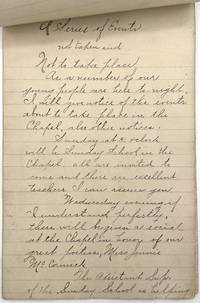 A Series of Events
not taken and
Not to take place,
As a number of our
young people are here to-night,
I will give notice of the events
about to take place in the
Chapel, also other notices:
Sunday at 2 o'clock
will be Sunday School in the
Chapel. all are invited to
come and there are excellent
teachers I can assure you
Wednesday evening if
I understand perfectly,
there will be given a social
at the Chapel in honor of our
great poetess, Miss Jennie
McConnell
The Assistant Supt.
of the Sunday School is helping